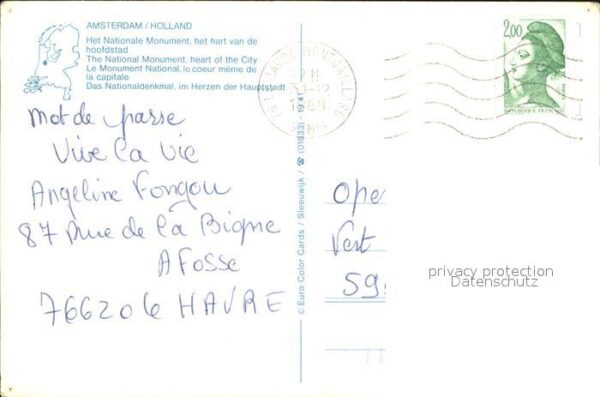 AMSTERDAM / HOLLAND
Het Nationale Monument, het hart van de
hoofdstad
The National Monument, heart of the City
Le Monument National, le coeur même de
la capitale
Das Nationaldenkmal, im Herzen der Hauptstadt
Mot de passe
Vive la vie
Angeline Fongou
87 rue de la Bigne
A Fosse
766206 HAVRE
© Euro Color Cards / Sleeuwijk / ☎ (01833) - 1941
2,00
REPUBLIQUE FRANÇAISE
Ope
Vert
59
privacy protection
Datenschutz